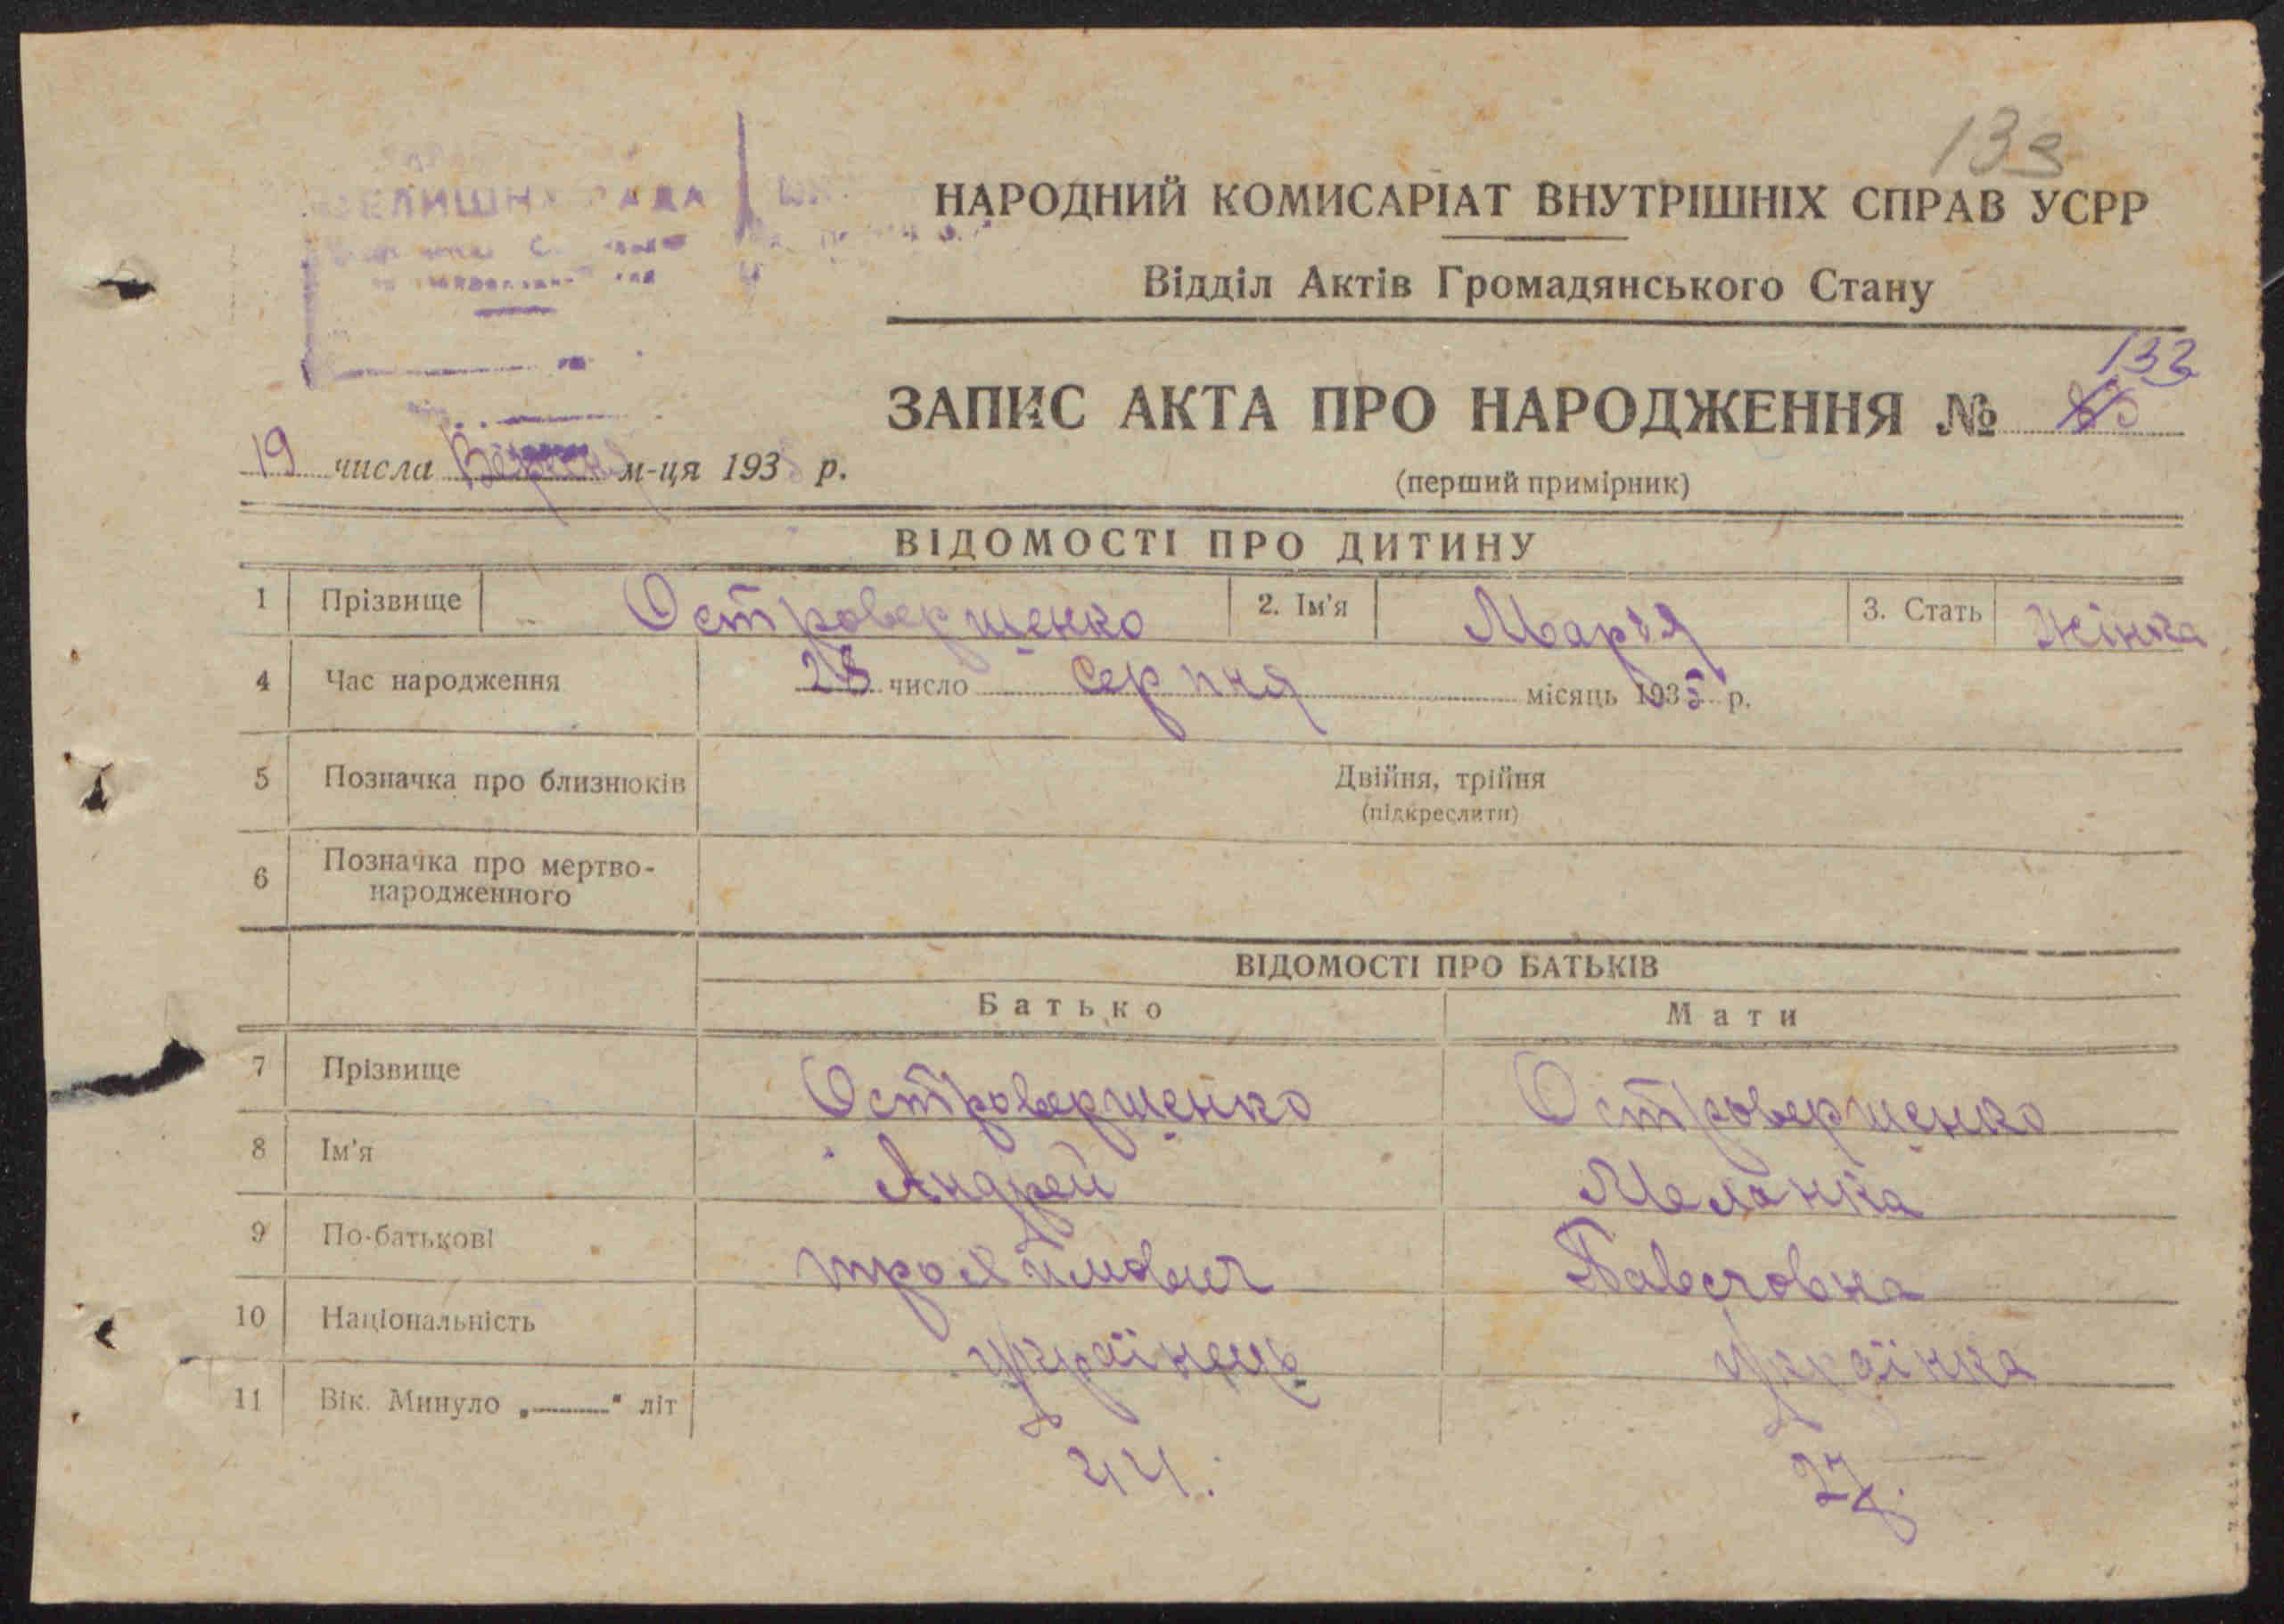 133
СЕЛИШНА РАДА
НАРОДНИЙ КОМИСАРІАТ ВНУТРІШНІХ СПРАВ УСРР
Відділ Актів Громадянського Стану
132
ЗАПИС АКТА ПРО НАРОДЖЕННЯ №
19 числа Вересня м-ця 193 р.
(перший примірник)
ВІДОМОСТІ ПРО ДИТИНУ
1 Прізвище Островершенко 2. Ім'я Марія 3. Стать Жінка
4 Час народження 28 число Серпня місяць 1935 р.
5 Позначка про близнюків Двійня, трійня
(підкреслити)
6 Позначка про мертво-
народженного
ВІДОМОСТІ ПРО БАТЬКІВ
Батько Мати
7 Прізвище Островершенко Островершенко
8 Ім'я Андрей Меланка
9 По-батькові трохимович Павловна
10 Національність українець українка
11 Вік. Минуло „——" літ
44. 27